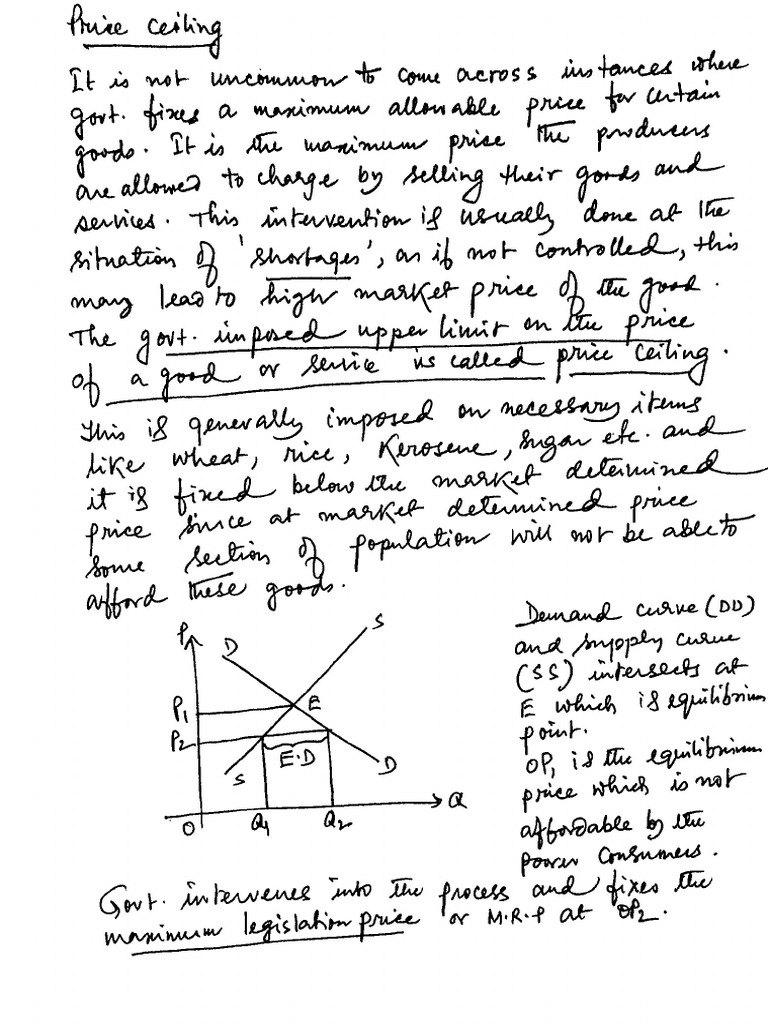 Price Ceiling
It is not uncommon to come across instances where
govt. fixes a maximum allowable price for certain
goods. It is the maximum price the producers
are allowed to charge by selling their goods and
services. This intervention is usually done at the
situation of 'shortages', as if not controlled, this
may lead to high market price of the good.
The govt. imposed upper limit on the price
of a good or service is called price ceiling.
This is generally imposed on necessary items
like wheat, rice, Kerosene, sugar etc. and
it is fixed below the market determined
price since at market determined price
some section of population will not be able to
afford these goods.
P
D
S
P1
E
P2
E.D
S
D
O
Q1
Q2
Q
Demand curve (DD)
and supply curve
(SS) intersects at
E which is equilibrium
point.
OP1 is the equilibrium
price which is not
affordable by the
poorer consumers.
Govt. intervenes into the process and fixes the
maximum legislation price or M.R.P at OP2.